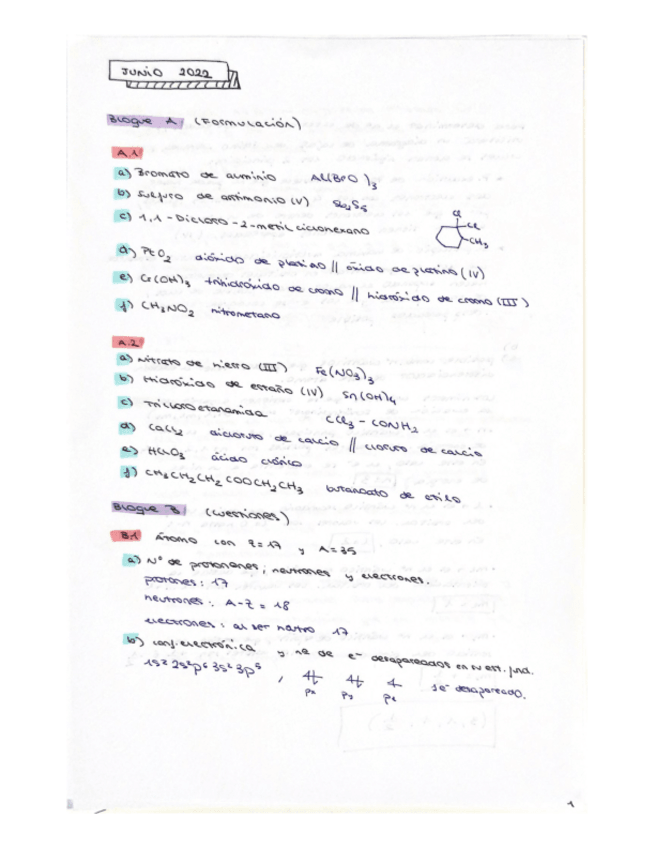 JUNIO 2022
Bloque A (Formulación)
A.1
a) Bromato de aluminio Al(BrO )3
b) Sulfuro de antimonio (V) Sb2S5
c) 1,1-Dicloro-2-metilciclohexano
Cl
Cl
CH3
d) PtO2 dióxido de platino // óxido de platino (IV)
e) Cr(OH)3 trihidróxido de cromo // hidróxido de cromo (III)
f) CH3NO2 nitrometano
A.2
a) Nitrato de hierro (III) Fe(NO3)3
b) Hidróxido de estaño (IV) Sn(OH)4
c) Tricloroetanamida CCl3-CONH2
d) CaCl2 dicloruro de calcio // cloruro de calcio
e) HClO3 ácido clórico
f) CH3CH2CH2COOCH2CH3 butanoato de etilo
Bloque B (cuestiones)
B.1 Átomo con Z=17 y A=35
a) Nº de protonones, neutrones y electrones.
protones: 17
neutrones: A-Z = 18
electrones: al ser neutro 17
b) conf. electrónica y nº de e- desapareados en su est. fund.
1s2 2s2p6 3s2 3p5 , 1e- desapareado.
px py pz
1